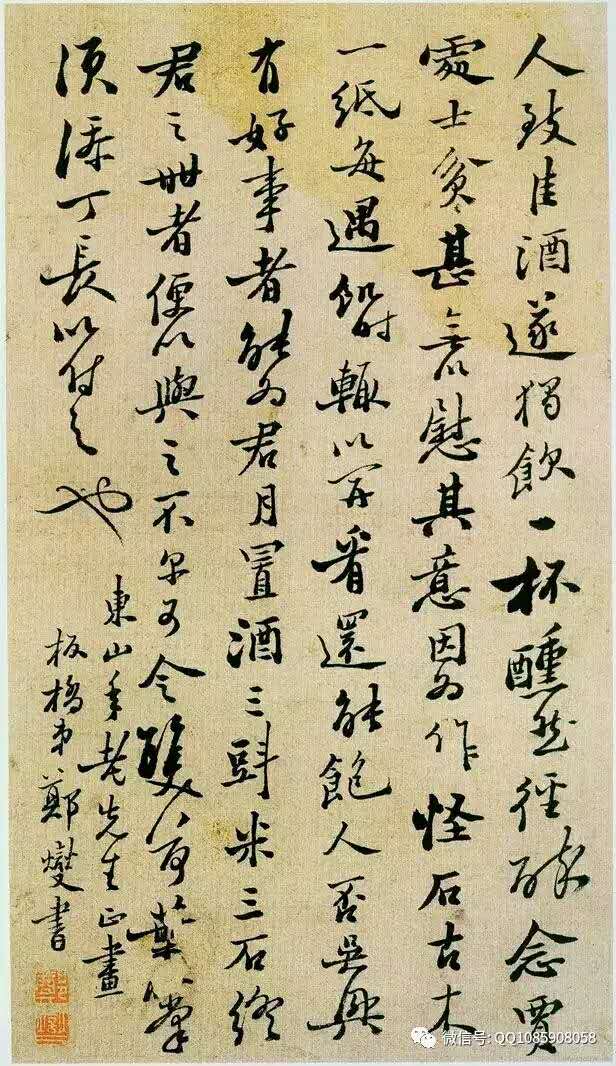 人致佳酒遂獨飲一杯醺然徑醉念賈
處士貧甚無以慰其意因為作怪石古木
一紙每遇飢時輒以開看還能飽人否吳興
有好事者能為君月置酒三斗米三石終
君之世者便以與之不尔可令雙荷葉掌
須添丁長以付之也
東山年老先生正畫
板橋弟鄭燮書
微信号: QQ1085908058